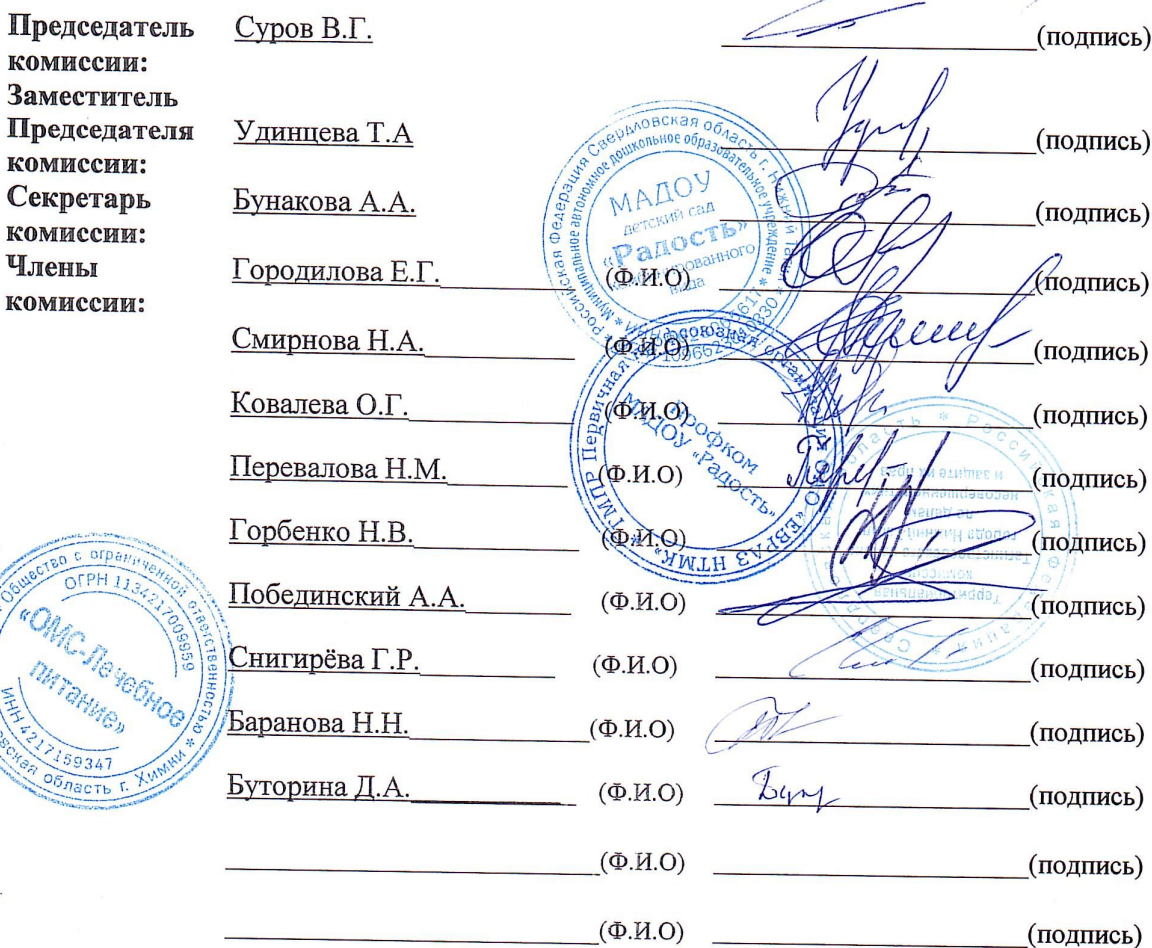 Председатель Суров В.Г. (подпись)
комиссии:
Заместитель
Председателя Удинцева Т.А (подпись)
комиссии:
Секретарь Бунакова А.А. (подпись)
комиссии:
Члены Городилова Е.Г. (Ф.И.О) (подпись)
комиссии:
Смирнова Н.А. (Ф.И.О) (подпись)
Ковалева О.Г. (Ф.И.О) (подпись)
Перевалова Н.М. (Ф.И.О) (подпись)
Горбенко Н.В. (Ф.И.О) (подпись)
Побединский А.А. (Ф.И.О) (подпись)
Снигирёва Г.Р. (Ф.И.О) (подпись)
Баранова Н.Н. (Ф.И.О) (подпись)
Буторина Д.А. (Ф.И.О) (подпись)
(Ф.И.О) (подпись)
(Ф.И.О) (подпись)
Российская Федерация Свердловская область г. Нижний
Муниципальное автономное дошкольное образовательное учреждение
МАДОУ
детский сад
«Радость»
комбинированного
вида
ГМПР Первичная профсоюзная организация "ЕВРАЗ НТМК"
Профком
МАДОУ "Радость"
Общество с ограниченной ответственностью
ОГРН 1134217009959
«ОМС-Лечебное
питание»
ИНН 4217159347
область г. Химки
Российская
Территориальная
комиссия
города Нижний
по делам
и защите их прав